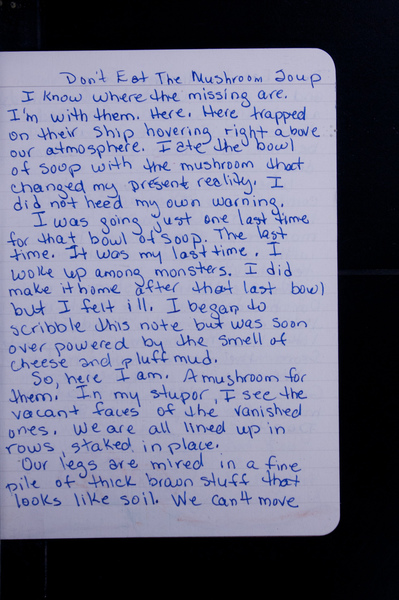 Don't Eat The Mushroom Soup
I know where the missing are.
I'm with them. Here. Here trapped
on their ship hovering right above
our atmosphere. I ate the bowl
of soup with the mushroom that
changed my present reality. I
did not heed my own warning.
I was going just one last time
for that bowl of soup. The last
time. It was my last time. I
woke up among monsters. I did
make it home after that last bowl
but I felt ill. I began to
scribble this note but was soon
over powered by the smell of
cheese and pluff mud.
So, here I am. A mushroom for
them. In my stupor, I see the
vacant faces of the vanished
ones. We are all lined up in
rows, staked in place.
Our legs are mired in a fine
pile of thick brown stuff that
looks like soil. We can't move